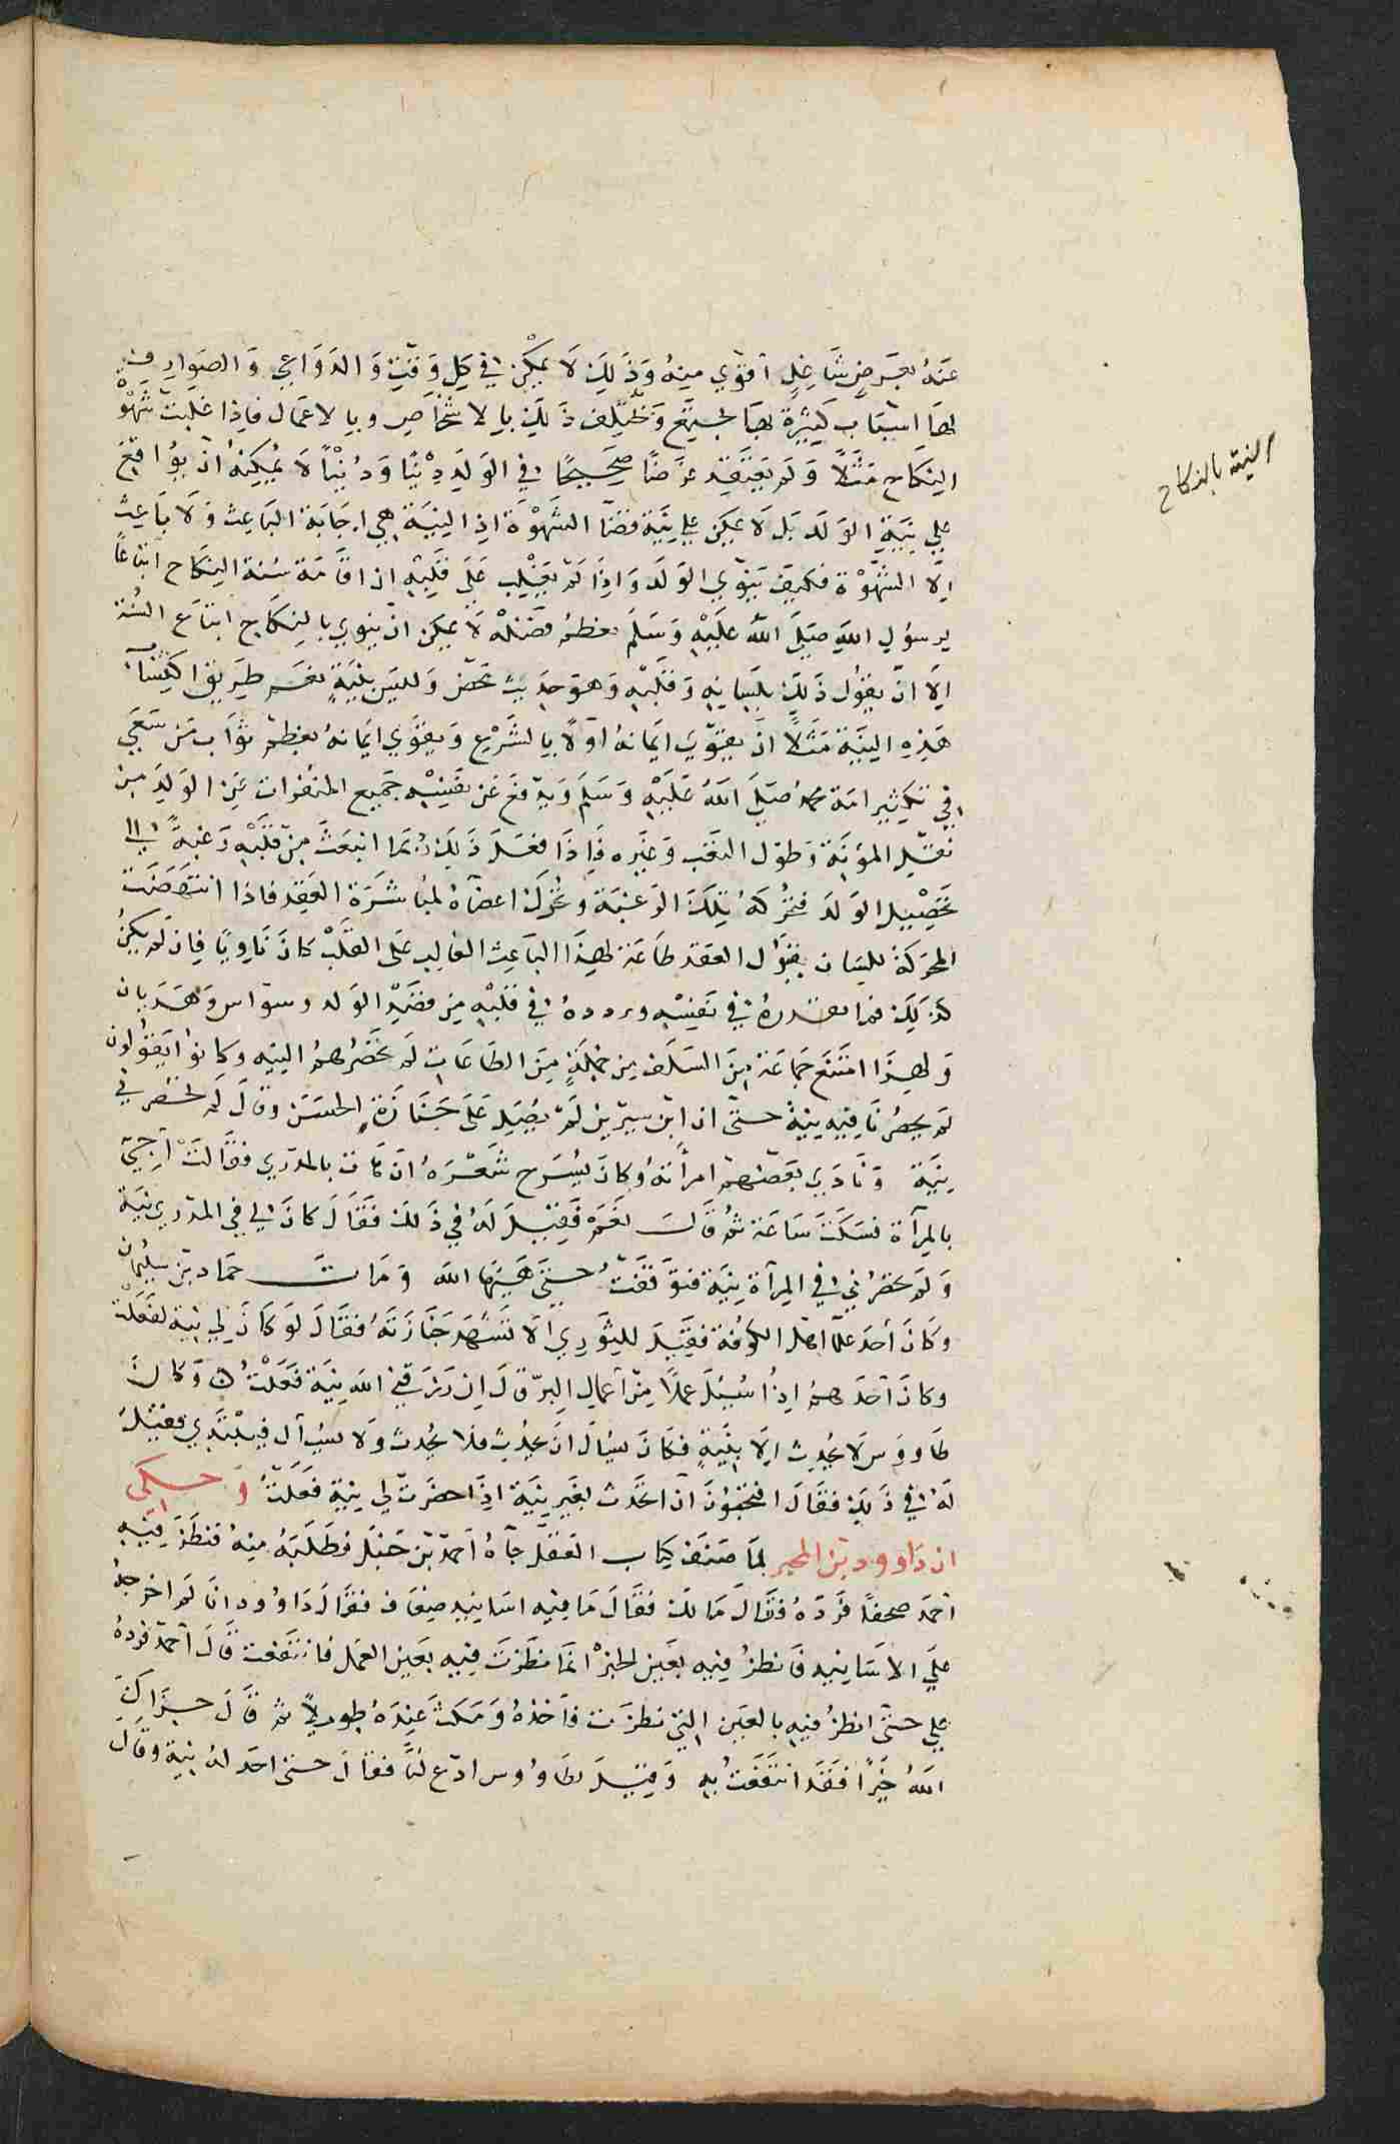 عنه بغرض شاغل أقوي منه وذلك لا يمكن في كل وقت والدواعي والصوارف
لها اسباب كثيرة بها تجتمع وتختلف ذلك بالاشخاص وبالاعمال فاذا غلبت شهوة
النكاح مثلا ولم يعتقد غرضا صحيحا في الولد دينا ودنيا لا يمكنه ان يواقع
علي نية الولد بل لا يمكن علي نية قضا الشهوة اذ النية هي اجابة الباعث ولا باعث
الا الشهوة فكيف ينوي الولد واذا لم يغلب على قلبه ان اقامة سنة النكاح اتباعا
لرسول الله صلى الله عليه وسلم يعظم فضله لا يمكن ان ينوي بالنكاح اتباع السنة
الا ان يقول ذلك بلسانه وقلبه وهو حديث محض وليس بنية نعم طريق اكتساب
هذه النية مثلا ان يقوي ايمانه اولا بالشرع ويقوي ايمانه بعظم ثواب من سعي
في تكثير امة محمد صلي الله عليه وسلم ويدفع عن نفسه جميع المنفرات عن الولد من
ثقل المؤنة وطول التعب وغيره فاذا فعل ذلك ربما انبعث من قلبه رغبة الي
تحصيل الولد فتحركه تلك الرغبة وتحرك اعضاه لمباشرة العقد فاذا انتهضت
المحركة للسان بقبول العقد طاعة لهذا الباعث الغالب على القلب كان ناويا فان لم يكن
كذلك فما يقدره في نفسه ويردده في قلبه من قصد الولد وسواس وهذيان
ولهذا امتنع جماعة من السلف من جملة من الطاعات لم تحضرهم النيه وكانوا يقولون
لم يحضرنا فيه نية حتى ان ابن سيرين لم يصل على جنازة الحسن وقال لم تحضرني
نية ونادي بعضهم امرأته وكان يسرح شعره ان هات بالمدري فقالت أجئ
بالمرآة فسكت ساعة ثم قال نعم فقيل له في ذلك فقال كان لي في المدري نية
ولم تحضرني في المرآة نية فتوقفت حتى هيئها الله ومات حماد بن سليمان
وكان أحد علما اهل الكوفة فقيل للثوري الا تشهد جنازته فقال لو كان لي نية لفعلت
وكان أحدهم اذا سئل عملا من أعمال البر قال ان رزقني الله نية فعلت وكان
طاووس لا يحدث الا بنية فكان يسال ان يحدث فلا يحدث ولا يسأل فيبتدي فقيل
له في ذلك فقال افتحبون ان احدث بغير نية اذا حضرت لي نية فعلت وحكي
ان داوود بن المحبر لما صنف كتاب العقل جآه أحمد بن حنبل فطلبه منه فنظر فيه
أحمد صحفا فرده فقال مالك فقال ما فيه اسانيد ضعاف فقال داوود انا لم اخرجه
على الاسانيد فانظر فيه بعين الخبر انما نظرت فيه بعين العمل فانتفعت قال أحمد فرده
علي حتى انظر فيه بالعين التي نظرت فأخذه ومكث عنده طويلا ثم قال جزاك
الله خيرا فقد انتفعت به وقيل لطاووس ادع لنا فقال حتى اجد له نية وقال
النية بالنكاح